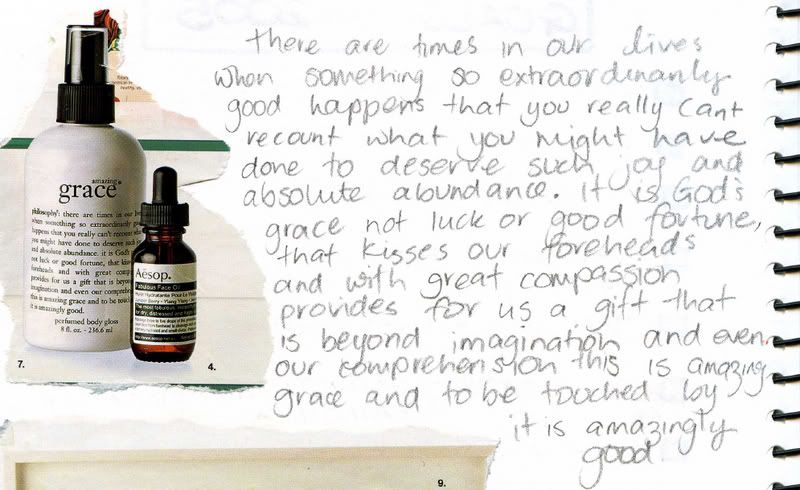 There are times in our lives
when something so extraordinarily
good happens that you really cant
recount what you might have
done to deserve such joy and
absolute abundance. it is God's
grace not luck or good fortune,
that kisses our foreheads
and with great compassion
provides for us a gift that
is beyond imagination and even
our comprehension this is amazing
grace and to be touched by
it is amazingly
good
amazing
grace
philosophy: there are times in our
when something so extraordinarily
happens that you really can't recount
you might have done to deserve such
and absolute abundance. it is God's
not luck or good fortune, that
foreheads and with great
provides for us a gift that is beyond
imagination and even our
this is amazing grace and to be
it is amazingly good.
perfumed body gloss
8 fl. oz. - 236.6 ml
Aēsop.
Fabulous Face Oil
7.
4.
9.